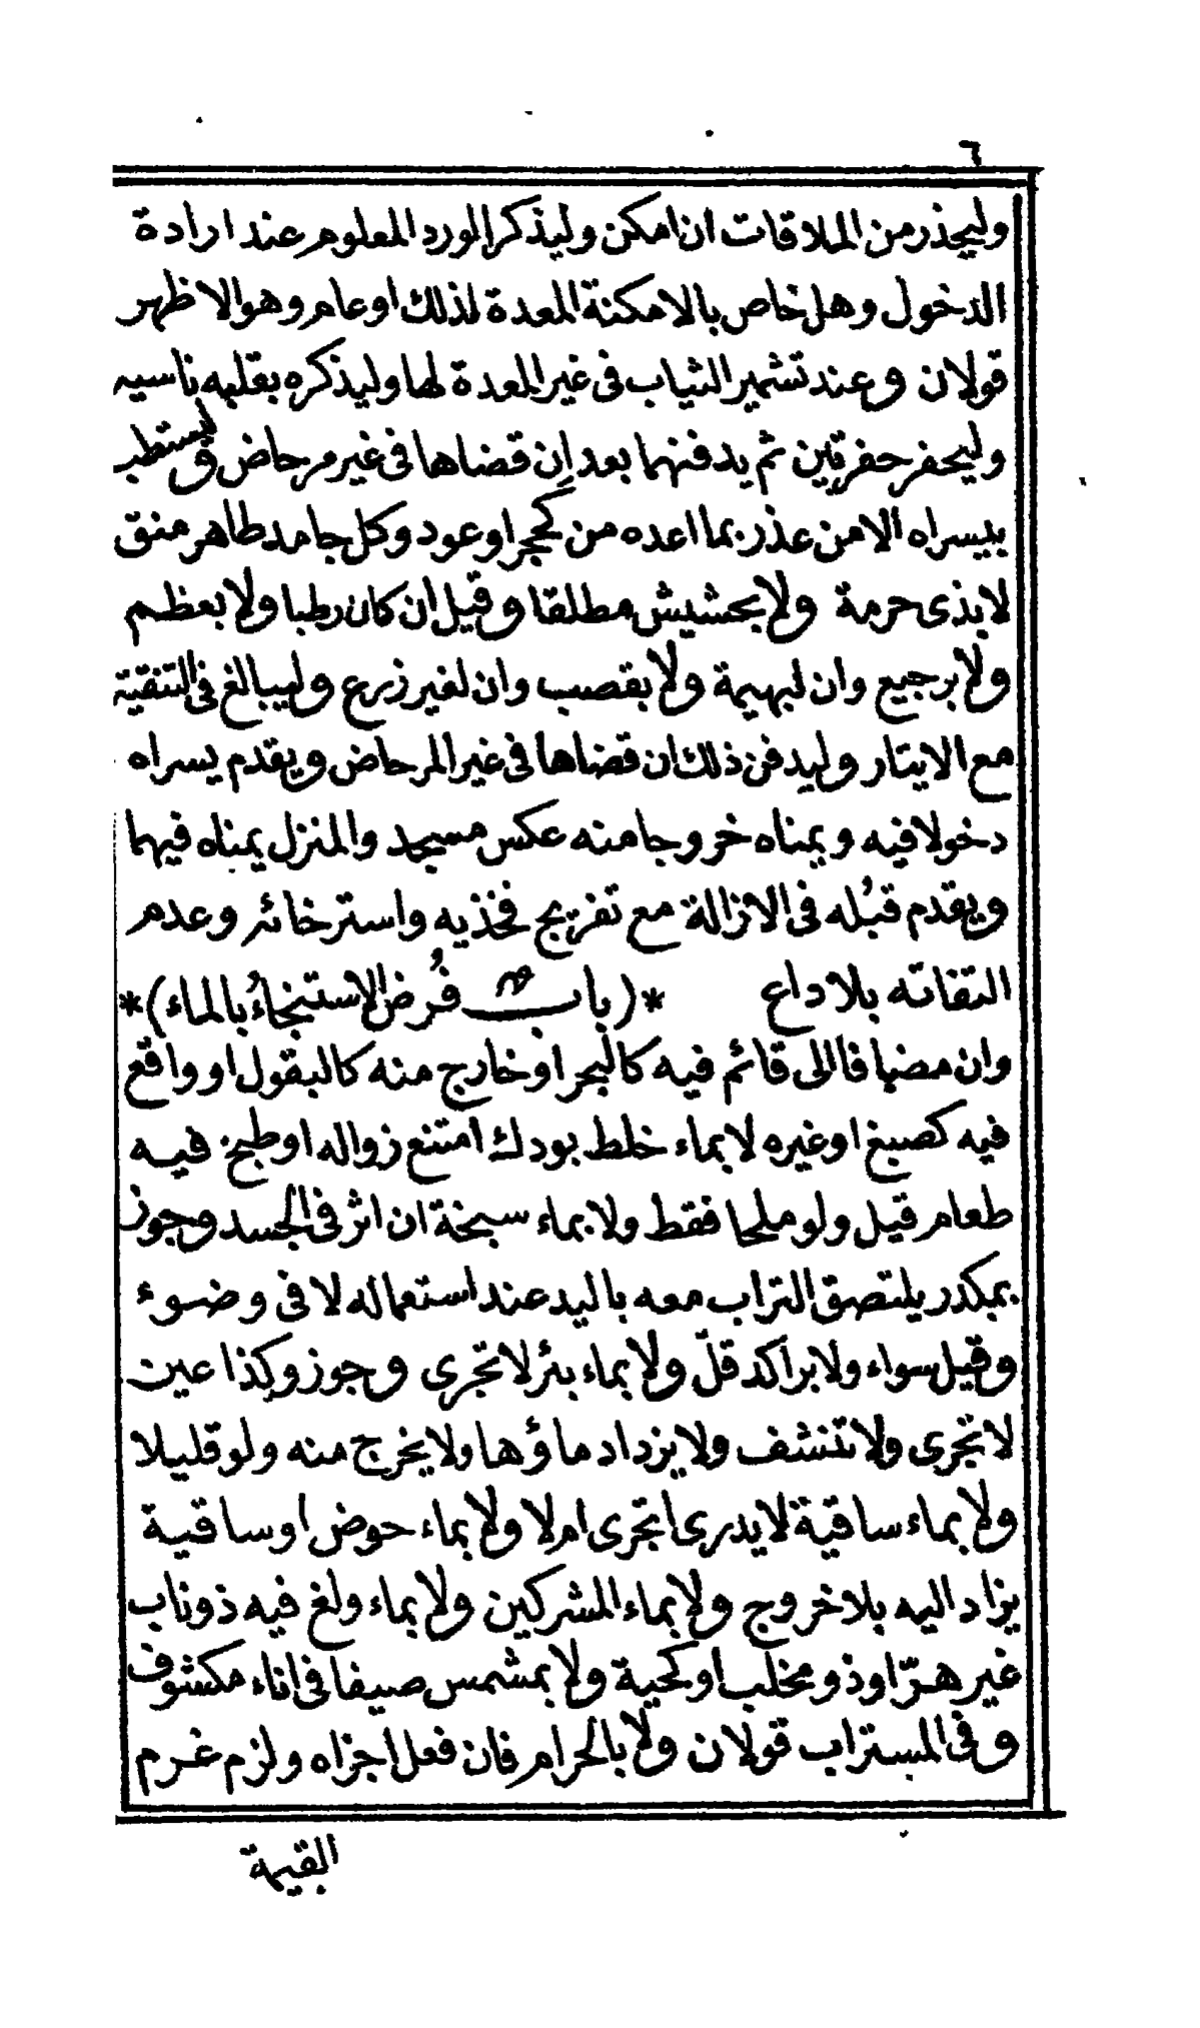 ٦
وليحذر من الملاقات ان امكن وليذكر الورد المعلوم عند ارادة
الدخول وهل خاص بالامكنة المعدة لذلك او عام وهو الاظهر
قولان وعند تشمير الثياب فى غير المعدة لها وليذكره بقلبه ناسيه
وليحفر حفرتين ثم يدفنهما بعد ان قضاها فى غير مرحاض وليستطب
بيسراه الا من عذر بما اعده من كحجر او عود وكل جامد طاهر منق
لا بذى حرمة ولا بحشيش مطلقا وقيل ان كان رطبا ولا بعظم
ولا برجيع وان لبهيمة ولا بقصب وان لغير زرع وليبالغ فى التنقية
مع الايتار وليدفن ذلك ان قضاها فى غير المرحاض ويقدم يسراه
دخولا فيه ويمناه خروجا منه عكس مسجد والمنزل يمناه فيهما
ويقدم قبُله فى الازالة مع تفريج فخذيه واسترخائه وعدم
التفاته بلا داع *(باب فُرض الاستنجاءُ بالماء)*
وان مضافا الى قائم فيه كالبحر او خارج منه كالبقول او واقع
فيه كصبغ او غيره لا بماء خلط بودك امتنع زواله او طبخ فيه
طعام قيل ولو ملحا فقط ولا بماء سبخة ان اثر فى الجسد وجوز
بمكدر يلتصق التراب معه باليد عند استعماله لا فى وضوء
وقيل سواء ولا براكد قلّ ولا بماء بئر لا تجرى وجوز وكذا عين
لا تجرى ولا تنشف ولا يزداد ماؤها ولا يخرج منه ولو قليلا
ولا بماء ساقية لا يدرى اتجرى ام لا ولا بماء حوض او ساقية
يزاد اليه بلا خروج ولا بماء المشركين ولا بماء ولغ فيه ذو ناب
غير هرّ او ذو مخلب او كحية ولا بمشمس صيفا فى اناء مكشوف
وفى المستراب قولان ولا بالحرام فان فعل اجزاه ولزم غرم
القيمة